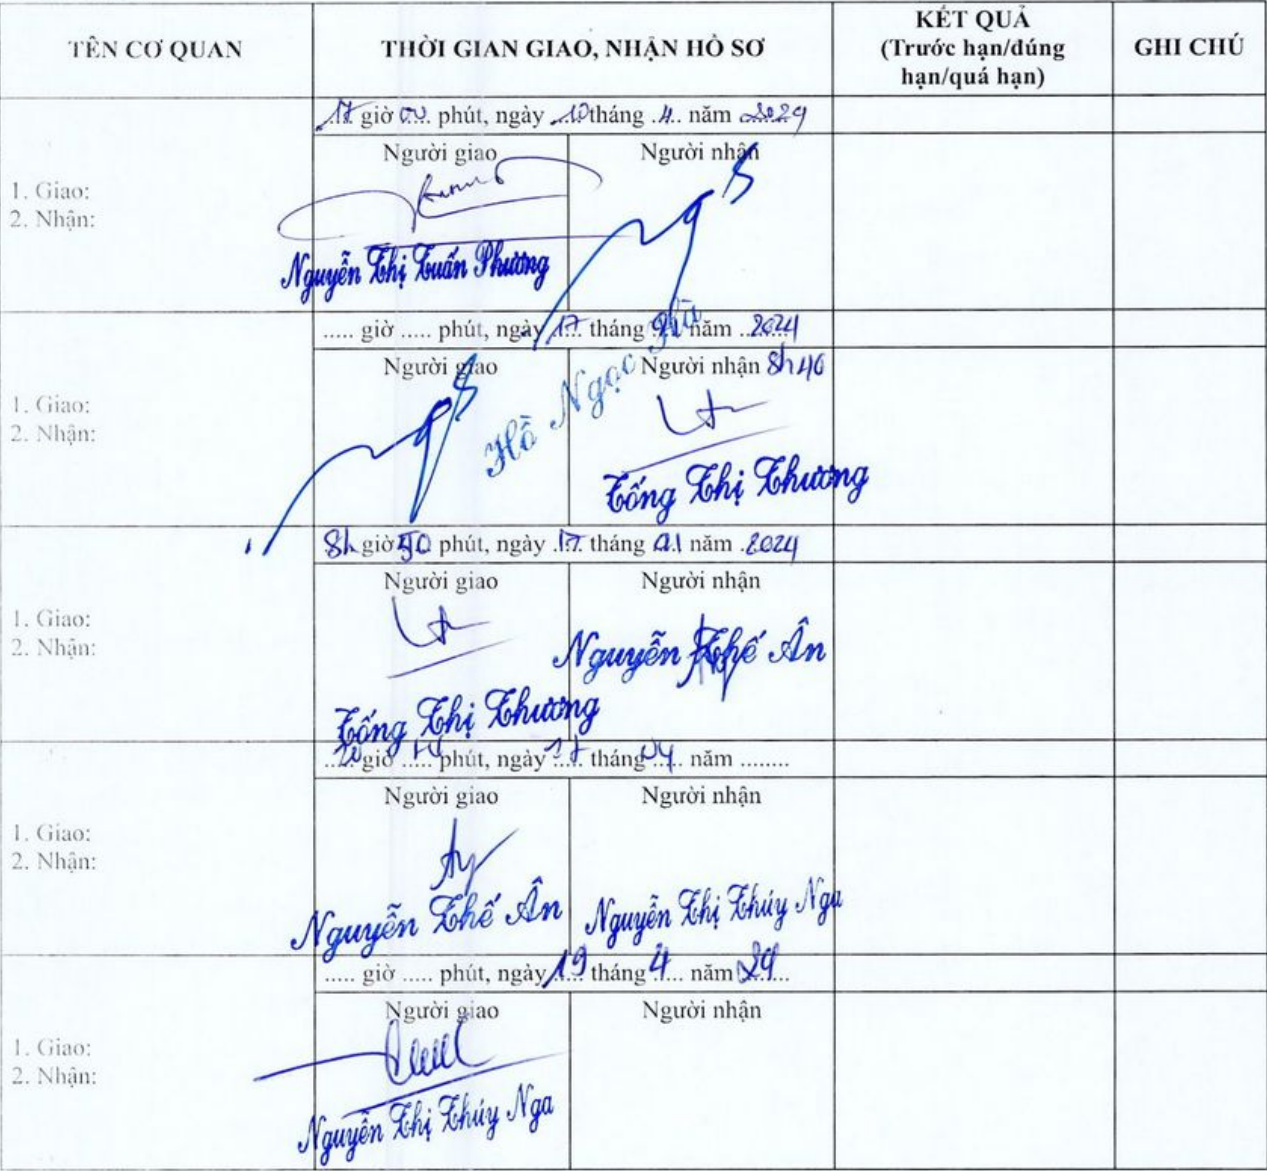 TÊN CƠ QUAN
THỜI GIAN GIAO, NHẬN HỒ SƠ
KẾT QUẢ
(Trước hạn/đúng
hạn/quá hạn)
GHI CHÚ
17 giờ 00 phút, ngày 10 tháng 4 năm 2024
1. Giao:
2. Nhận:
Người giao
Nguyễn Thị Tuấn Phương
Người nhận
Hồ Ngọc Hà
..... giờ ..... phút, ngày 17 tháng năm 2024
1. Giao:
2. Nhận:
Người giao
Người nhận 8h40
Tống Thị Thương
8h giờ 50 phút, ngày 17 tháng năm 2024
1. Giao:
2. Nhận:
Người giao
Tống Thị Thương
Người nhận
Nguyễn Thế Ân
giờ phút, ngày 17 tháng 04 năm ........
1. Giao:
2. Nhận:
Người giao
Nguyễn Thế Ân
Người nhận
Nguyễn Thị Thúy Nga
..... giờ ..... phút, ngày 19 tháng 4 năm 24
1. Giao:
2. Nhận:
Người giao
Nguyễn Thị Thúy Nga
Người nhận